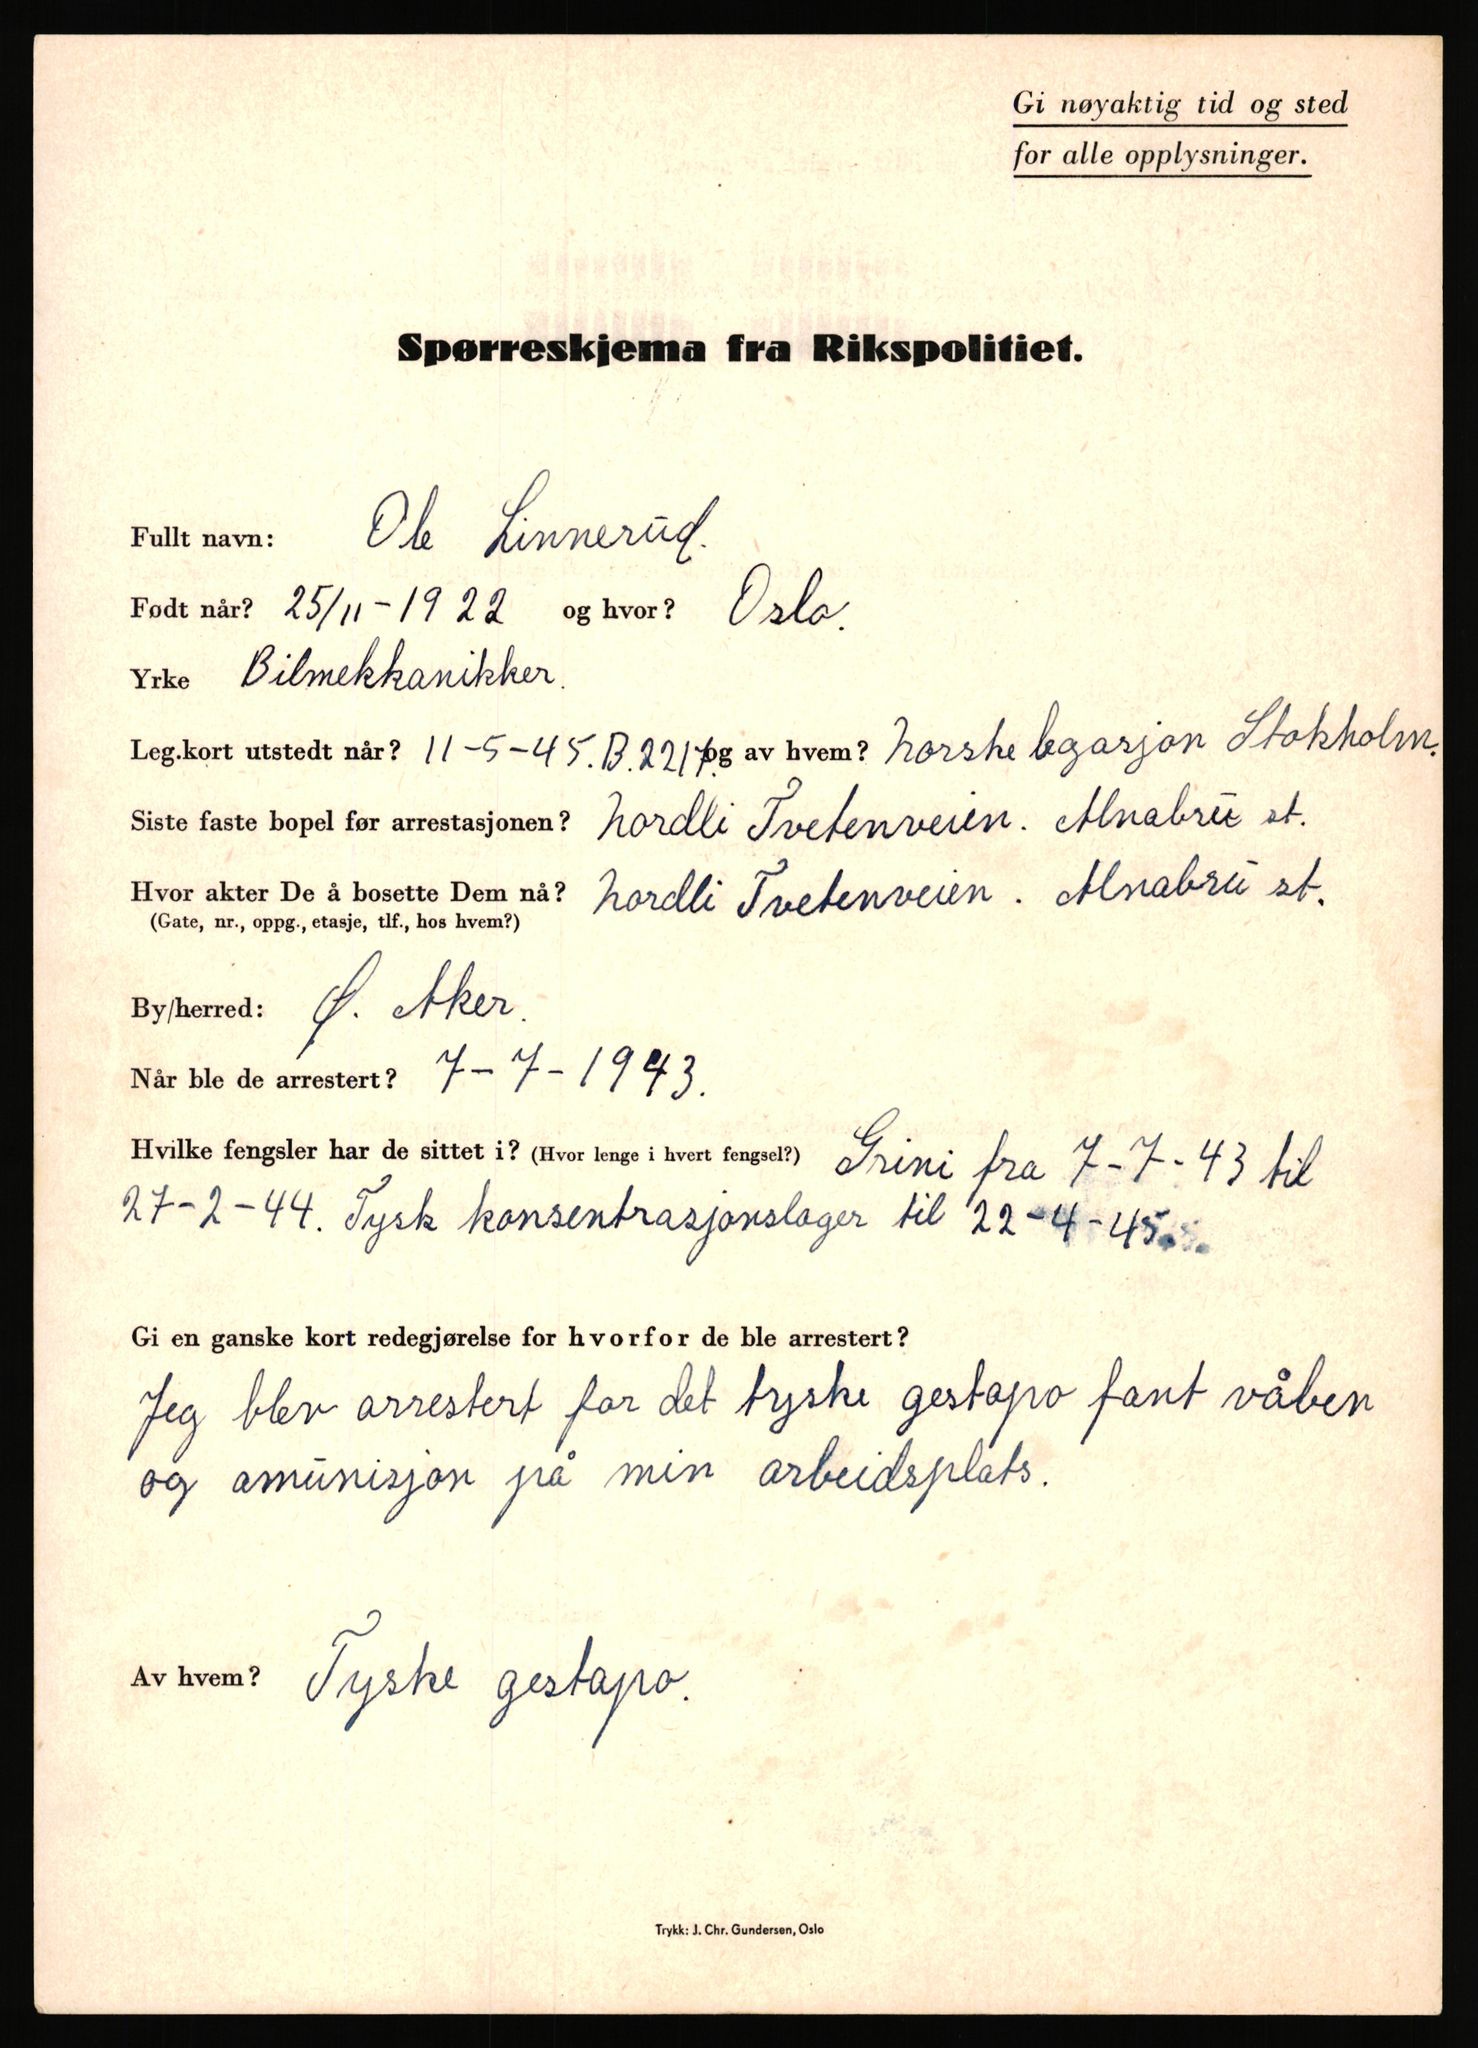 Gi nøyaktig tid og sted
for alle opplysninger.
Spørreskjema fra Rikspolitiet.
Fullt navn: Ole Linnerud.
Født når? 25/11-1922 og hvor? Oslo.
Yrke Bilmekkanikker.
Leg.kort utstedt når? 11-5-45. B.2217. og av hvem? Norske legasjon Stokholm.
Siste faste bopel før arrestasjonen? Nordli Tvetenveien. Alnabru st.
Hvor akter De å bosette Dem nå? Nordli Tvetenveien. Alnabru st.
(Gate, nr., oppg., etasje, tlf., hos hvem?)
By/herred: Ø. Aker.
Når ble de arrestert? 7-7-1943.
Hvilke fengsler har de sittet i? (Hvor lenge i hvert fengsel?) Grini fra 7-7-43 til
27-2-44. Tysk konsentrasjonslager til 22-4-45.
Gi en ganske kort redegjørelse for hvorfor de ble arrestert?
Jeg blev arrestert for det tyske gestapo fant våben
og amunisjon på min arbeidsplats.
Av hvem? Tyske gestapo.
Trykk: J. Chr. Gundersen, Oslo